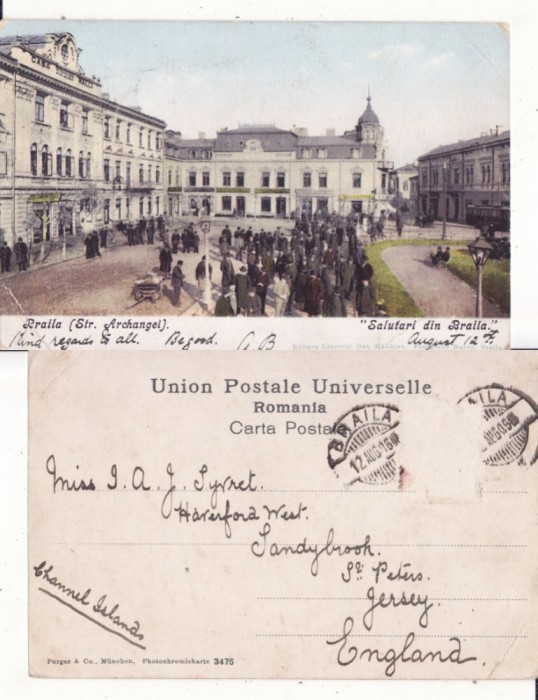 Braila (Str. Archangel).
"Salutari din Braila."
Kind regards to all. Be good. A B
August 12th
Union Postale Universelle
Romania
Carta Postale
BRAILA
BRAILA
Miss I. A. J. Syvret.
Haverford West.
Sandybrook.
St. Peters.
Jersey.
England.
Channel Islands
Purger & Co., München, Photochromiekarte 3475